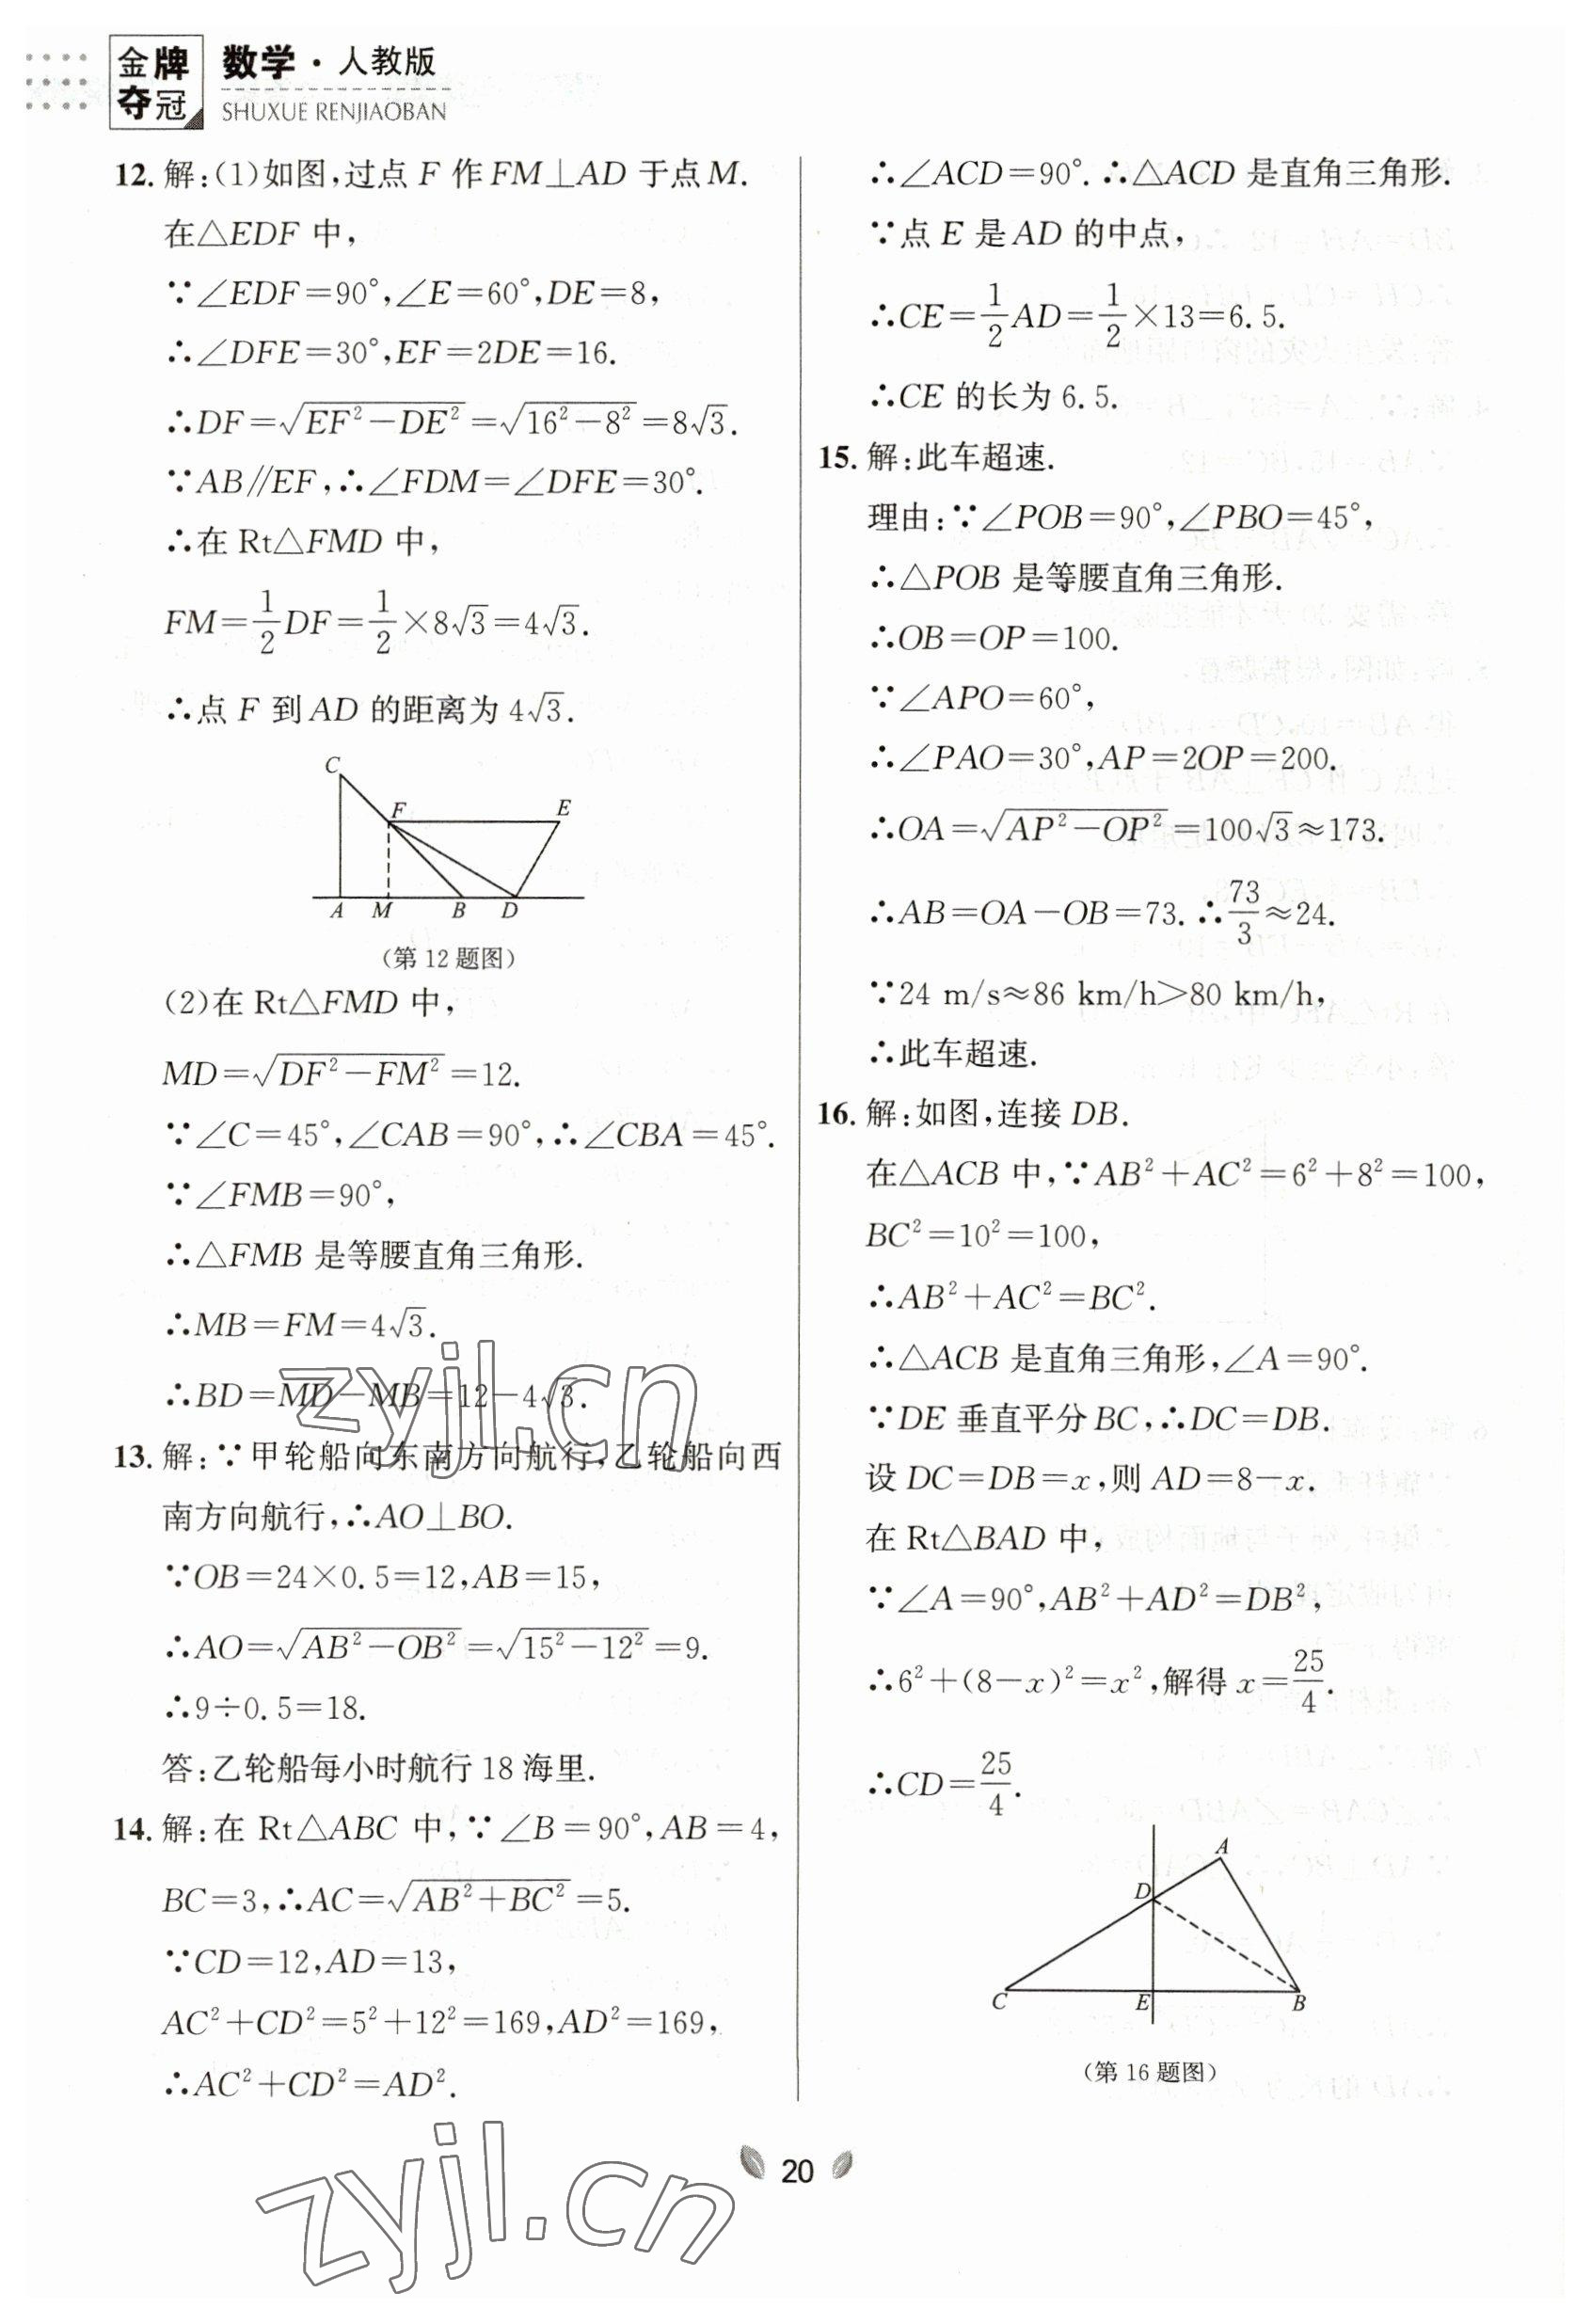 金牌
夺冠
数学·人教版
SHUXUE RENJIAOBAN
12. 解:(1)如图,过点 F 作 FM⊥AD 于点 M.
在△EDF 中,
∵∠EDF=90°,∠E=60°,DE=8,
∴∠DFE=30°,EF=2DE=16.
∴DF=√(EF²-DE²)=√(16²-8²)=8√3.
∵AB∥EF,∴∠FDM=∠DFE=30°.
∴在 Rt△FMD 中,
FM=1/2DF=1/2×8√3=4√3.
∴点 F 到 AD 的距离为 4√3.
C
F
E
A
M
B
D
(第 12 题图)
(2)在 Rt△FMD 中,
MD=√(DF²-FM²)=12.
∵∠C=45°,∠CAB=90°,∴∠CBA=45°.
∵∠FMB=90°,
∴△FMB 是等腰直角三角形.
∴MB=FM=4√3.
∴BD=MD-MB=12-4√3.
13. 解:∵甲轮船向东南方向航行,乙轮船向西
南方向航行,∴AO⊥BO.
∵OB=24×0.5=12,AB=15,
∴AO=√(AB²-OB²)=√(15²-12²)=9.
∴9÷0.5=18.
答:乙轮船每小时航行 18 海里.
14. 解:在 Rt△ABC 中,∵∠B=90°,AB=4,
BC=3,∴AC=√(AB²+BC²)=5.
∵CD=12,AD=13,
AC²+CD²=5²+12²=169,AD²=169,
∴AC²+CD²=AD².
∴∠ACD=90°.∴△ACD 是直角三角形.
∵点 E 是 AD 的中点,
∴CE=1/2AD=1/2×13=6.5.
∴CE 的长为 6.5.
15. 解:此车超速.
理由:∵∠POB=90°,∠PBO=45°,
∴△POB 是等腰直角三角形.
∴OB=OP=100.
∵∠APO=60°,
∴∠PAO=30°,AP=2OP=200.
∴OA=√(AP²-OP²)=100√3≈173.
∴AB=OA-OB=73.∴73/3≈24.
∵24 m/s≈86 km/h>80 km/h,
∴此车超速.
16. 解:如图,连接 DB.
在△ACB 中,∵AB²+AC²=6²+8²=100,
BC²=10²=100,
∴AB²+AC²=BC².
∴△ACB 是直角三角形,∠A=90°.
∵DE 垂直平分 BC,∴DC=DB.
设 DC=DB=x,则 AD=8-x.
在 Rt△BAD 中,
∵∠A=90°,AB²+AD²=DB²,
∴6²+(8-x)²=x²,解得 x=25/4.
∴CD=25/4.
A
D
C
E
B
(第 16 题图)
zyjl.cn
zyjl.cn
20